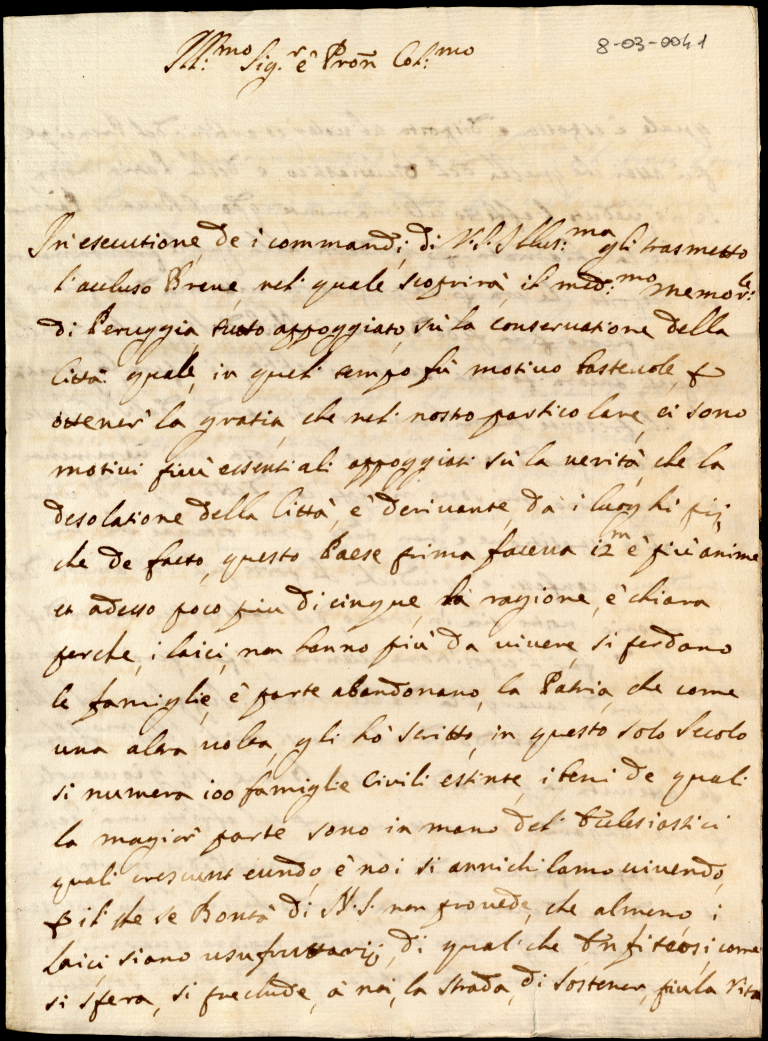 8-03-0041
Ill:mo Sig.r è Pron Col:mo
In esecutione de i commandi di V.S. Illus:ma gli trasmetto
l'accluso Breve nel quale scoprirà il med:mo memor:le
di Peruggia tutto appoggiato sù la conservatione della
Città quale in quel tempo fù motivo bastevole p
ottener la gratia che nel nostro particolare ci sono
motivi più essentiali appoggiati sù la verità che la
desolatione della Città è derivante da i luoghi pij
che de facto questo Paese prima faceva 12m è più anime
et adesso poco più di cinque la ragione è chiara
perche i laici non hanno più da vivere si perdano
le famiglie è parte abandonano la Patria che come
una altra volta gli hò scritto in questo solo secolo
si numera 100 famiglie Civili estinte i beni de quali
la magior parte sono in mano del Eclesiastici
quali crescunt eundo è noi si annichilamo vivendo
p il che se Bontà di N.S. non provede che almeno i
laici siano usufruttarij di qualche Enfiteosi come
si spera si preclude à noi la strada di sostener più la vita